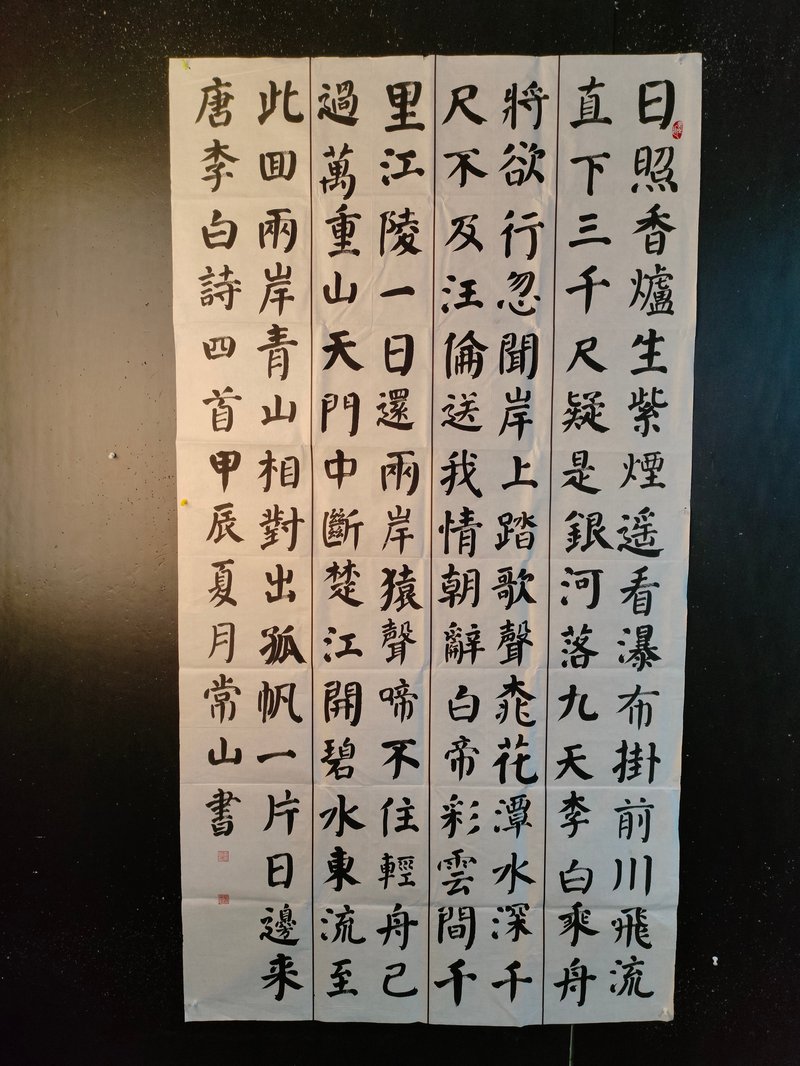 日照香爐生紫煙遥看瀑布掛前川飛流
直下三千尺疑是銀河落九天李白乘舟
將欲行忽聞岸上踏歌聲桃花潭水深千
尺不及汪倫送我情朝辭白帝彩雲間千
里江陵一日還兩岸猿聲啼不住輕舟已
過萬重山天門中斷楚江開碧水東流至
此回兩岸青山相對出孤帆一片日邊来
唐李白詩四首甲辰夏月常山書